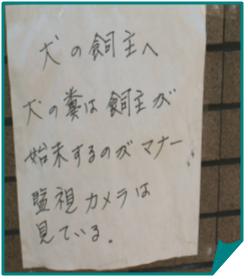 犬の飼主へ
犬の糞は飼主が
始末するのがマナー
監視カメラは
見ている.